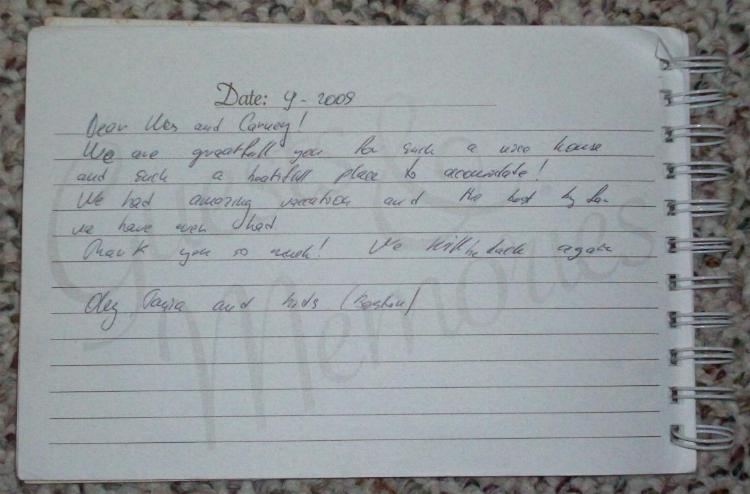 Date: 9 - 2009
Dear Wes and Carney!
We are greatfull you for such a nice house
and such a beatifull place to accomodate!
We had amazing vacation and the best by far
we have even had
Thank you so much! We will be back again
Oleg Tanya and kids (Boston)
Guest &
Memories